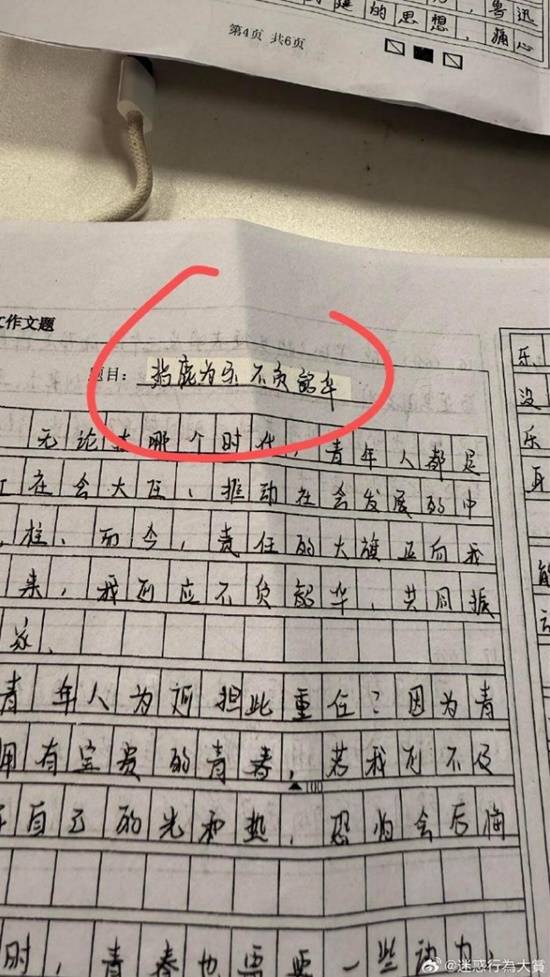 的思想，鲁迅
痛心
第4页 共6页
作文题
题目：指鹿为乐 不负韶华
无论在哪个时代，青年人都是
在会大任、推动社会发展的中
柱，而今，责任的大旗正向我
来，我们应不负韶华，共同振
家。
青年人为何担此重任？因为青
拥有宝贵的青春，若我们不及
自己的光和热，恐怕会后悔
100
时，青春也需要一些动力
乐
没
乐
身
能
@迷惑行為大賞